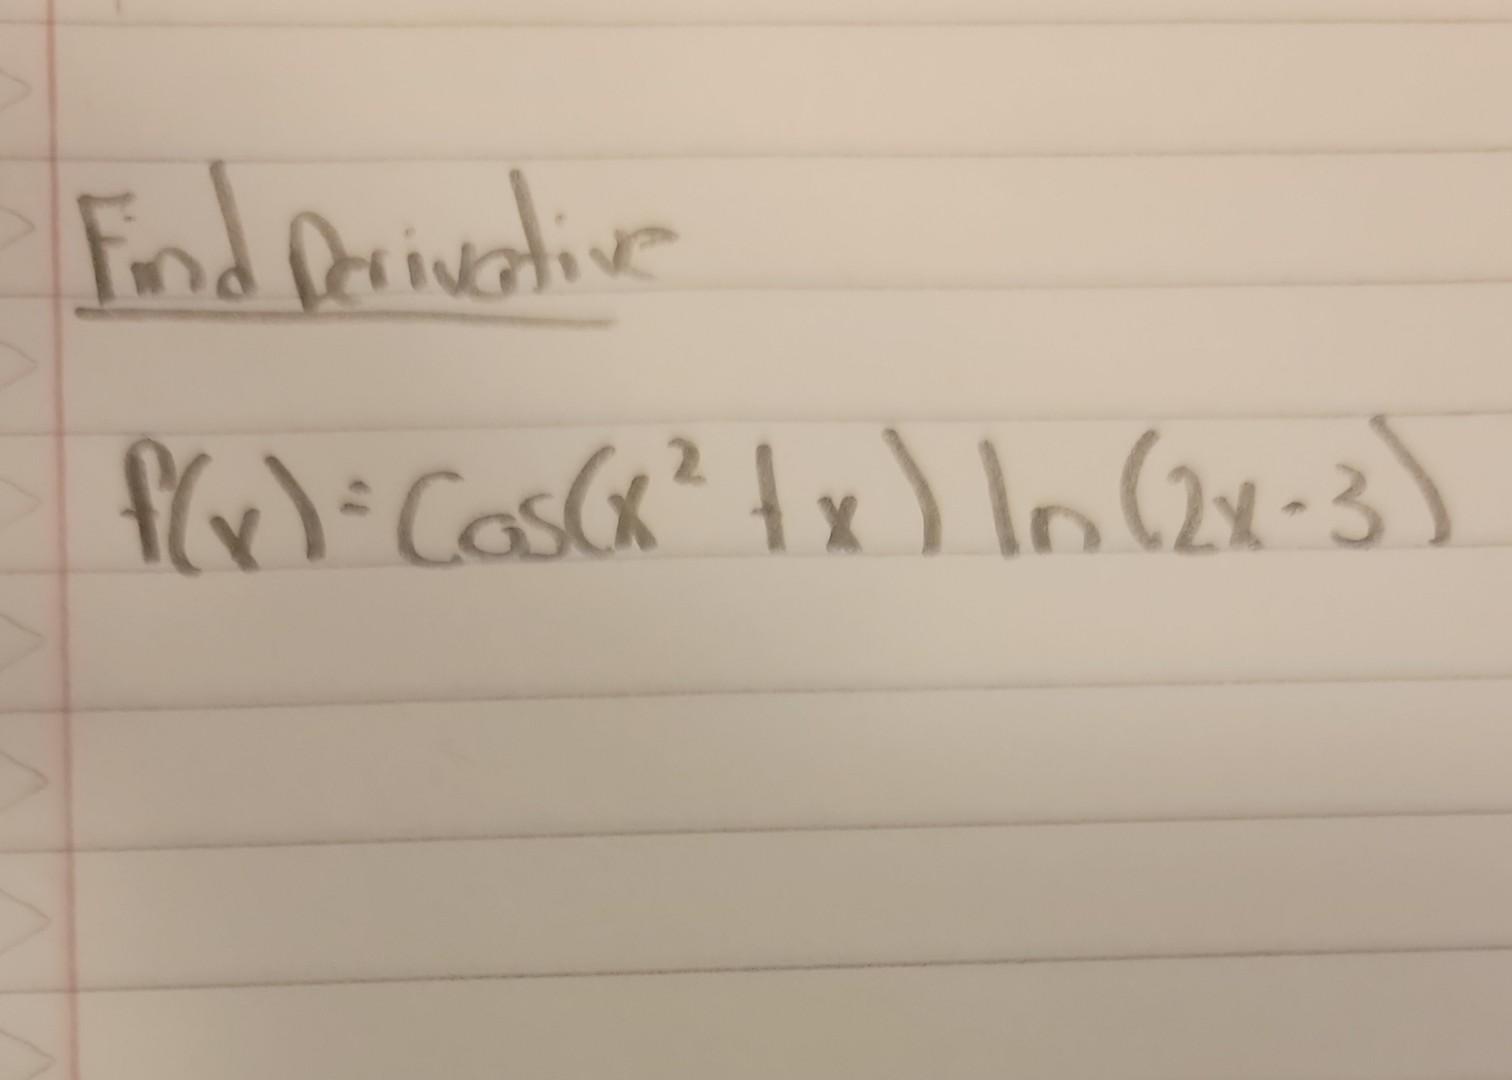 Find Derivative
f(x) = Cos(x² + x) ln(2x - 3)